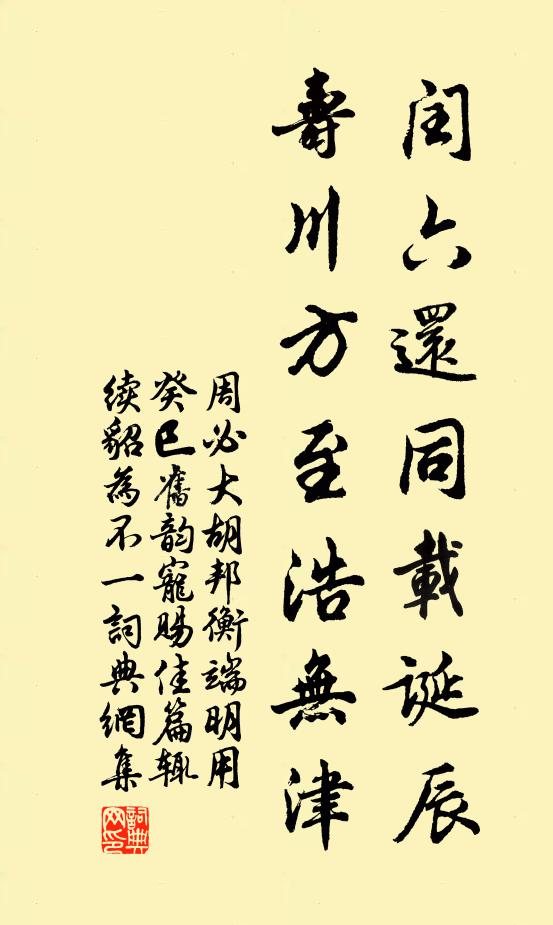 闰六還同載誕辰
壽川方至浩無津
周必大胡邦衡端明用
癸巳舊韵寵賜佳篇輙
續貂為不一詞典網集
詞典网印